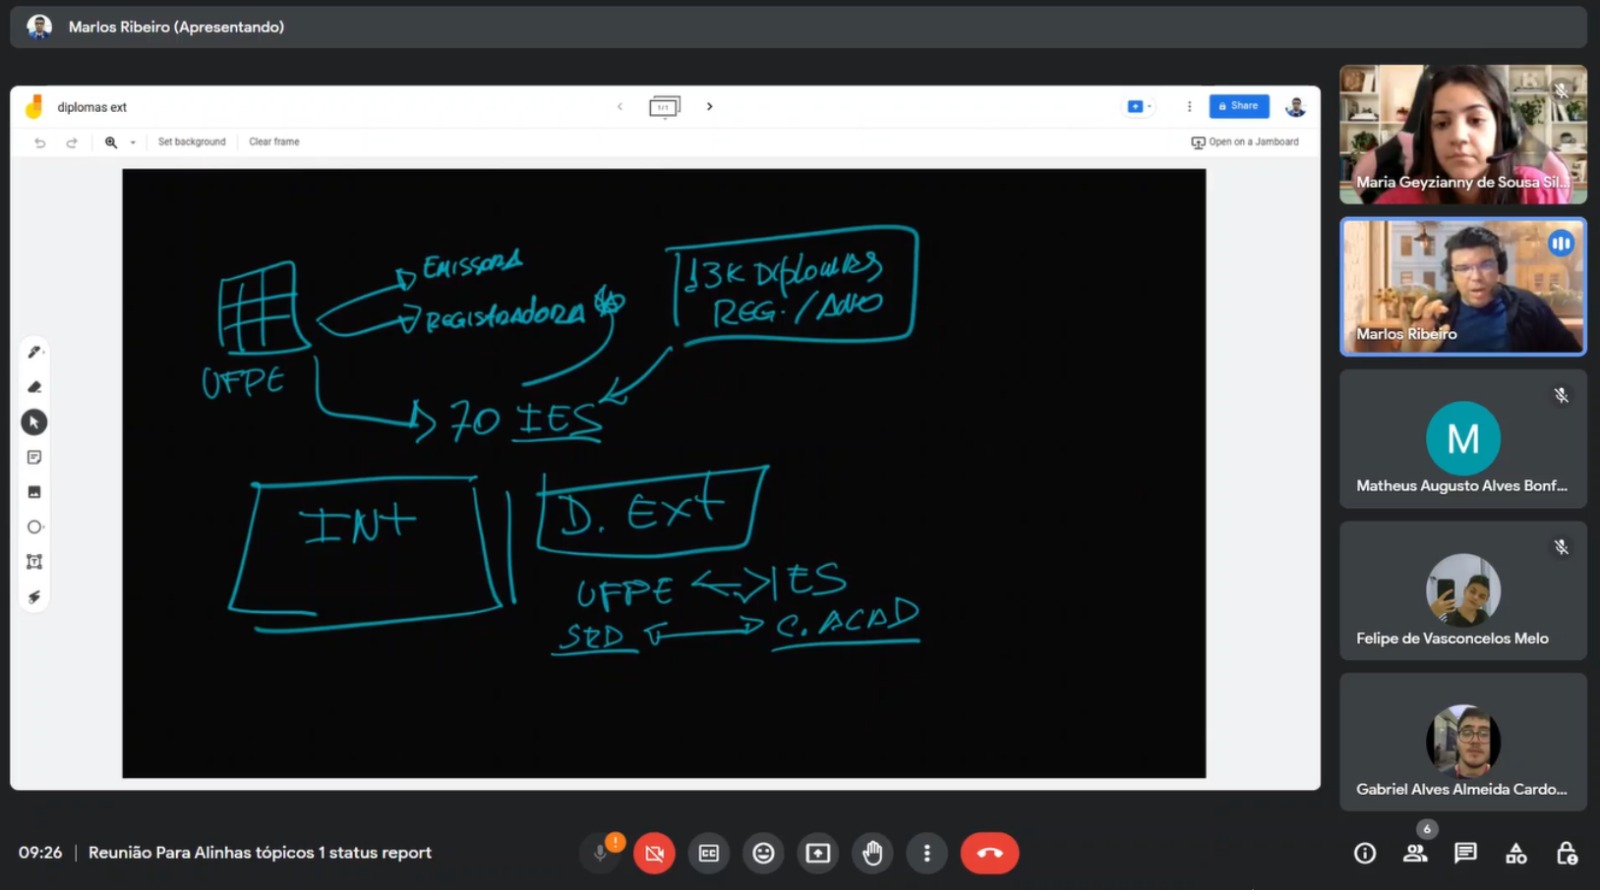 Marlos Ribeiro (Apresentando)
diplomas ext
1/1
Share
Set background
Clear frame
Open on a Jamboard
EMISSORA
REGISTRADORA
13K DIPLOMAS
REG./ANO
UFPE
70 IES
INT
D. EXT
UFPE <-> IES
SRD <-> C. ACAD
Maria Geyzianny de Sousa Sil...
Marlos Ribeiro
M
Matheus Augusto Alves Bonf...
Felipe de Vasconcelos Melo
Gabriel Alves Almeida Cardo...
09:26 | Reunião Para Alinhas tópicos 1 status report
CC
6